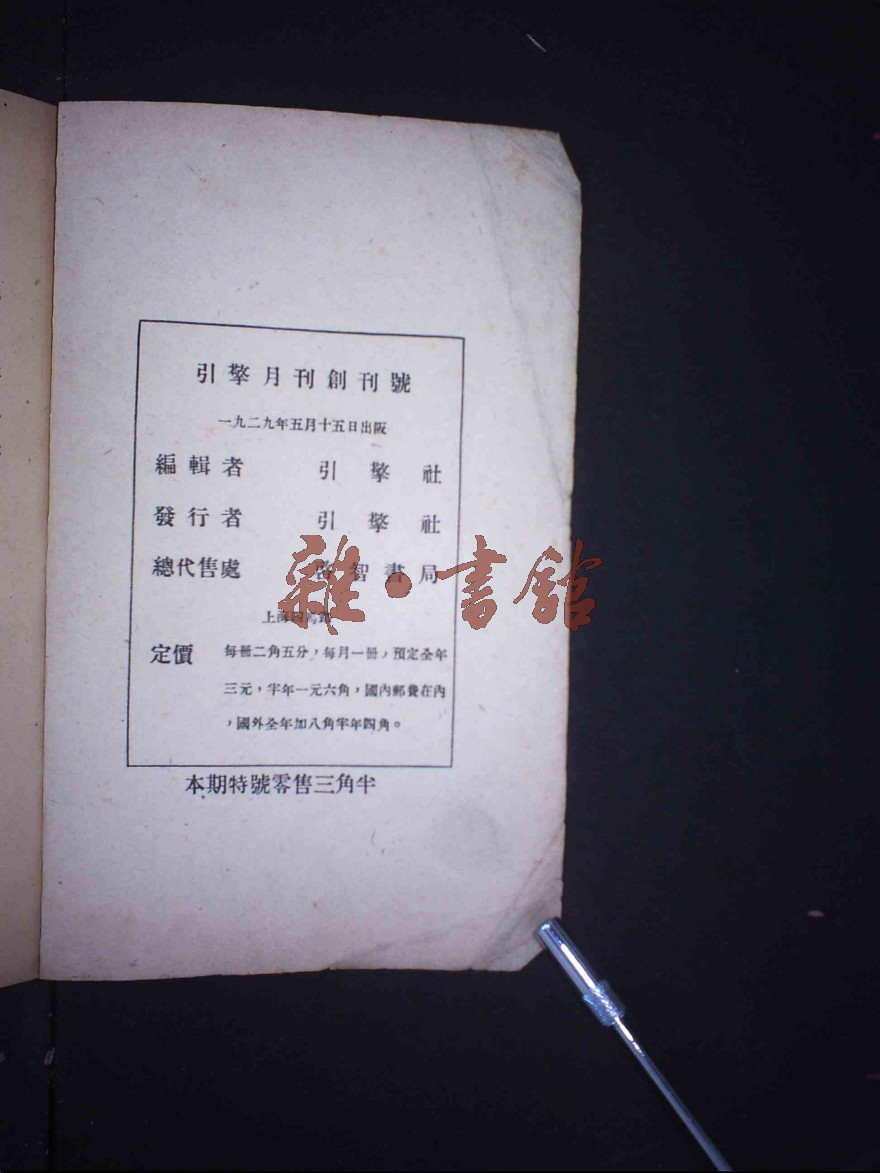 引擎月刊創刊號
一九二九年五月十五日出版
編輯者 引擎社
發行者 引擎社
總代售處 啓智書局
上海四馬路
定價 每冊二角五分，每月一冊，預定全年
三元，半年一元六角，國內郵費在內
，國外全年加八角半年四角。
本期特號零售三角半
雜·書館